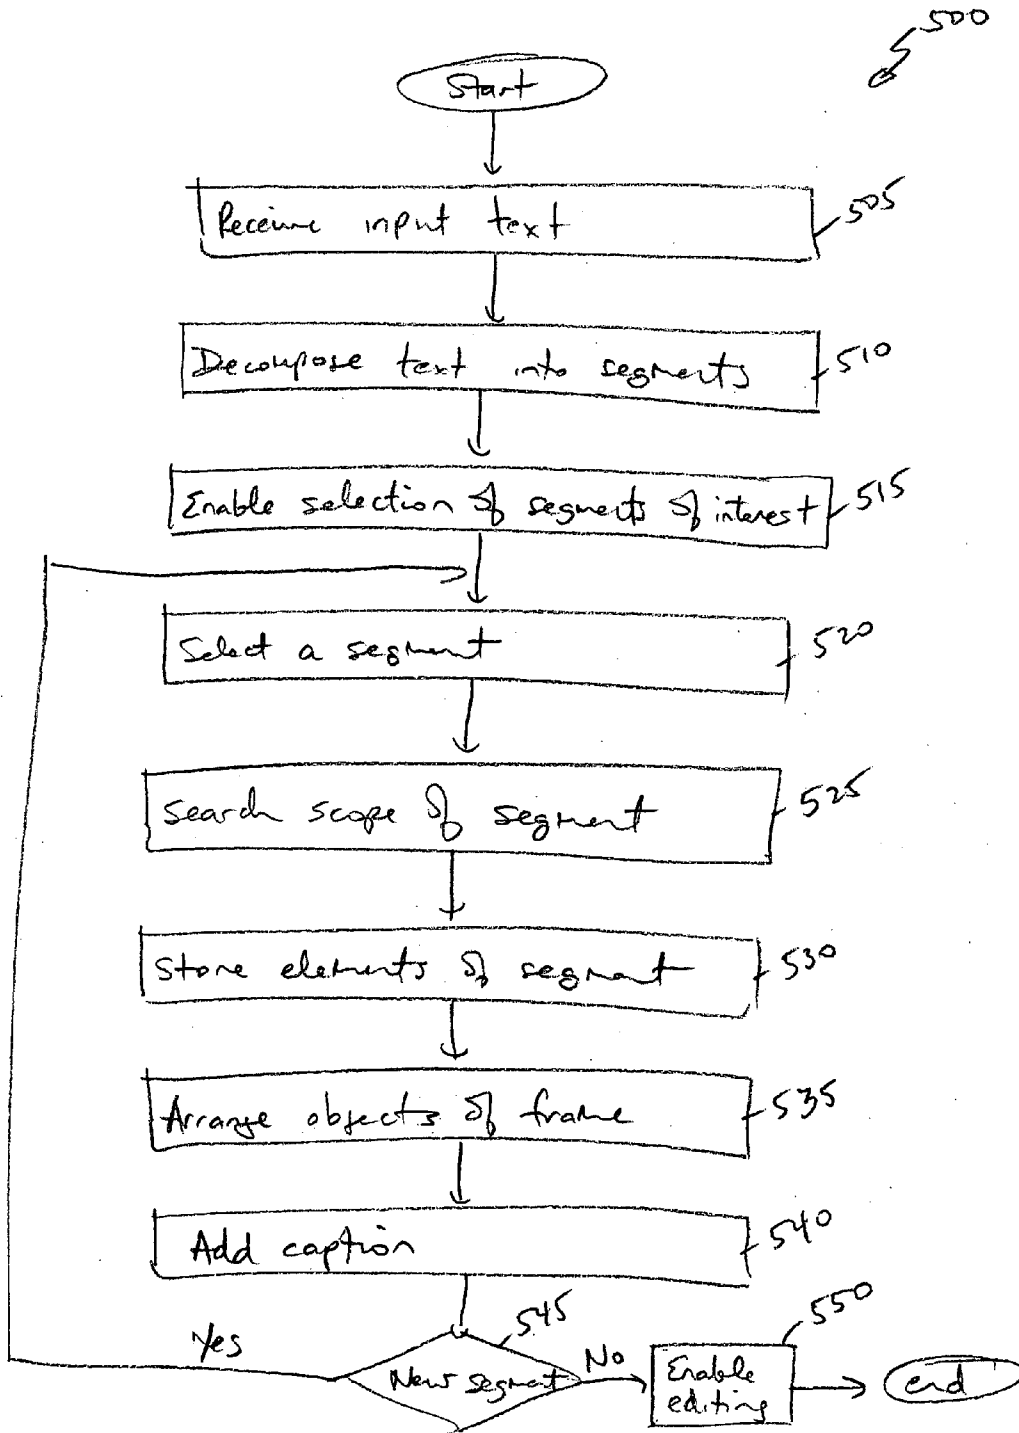 500
Start
Receive input text
505
Decompose text into segments
510
Enable selection of segments of interest
515
Select a segment
520
Search scope of segment
525
Store elements of segment
530
Arrange objects of frame
535
Add caption
540
545
Yes
New segment
No
550
Enable
editing
end